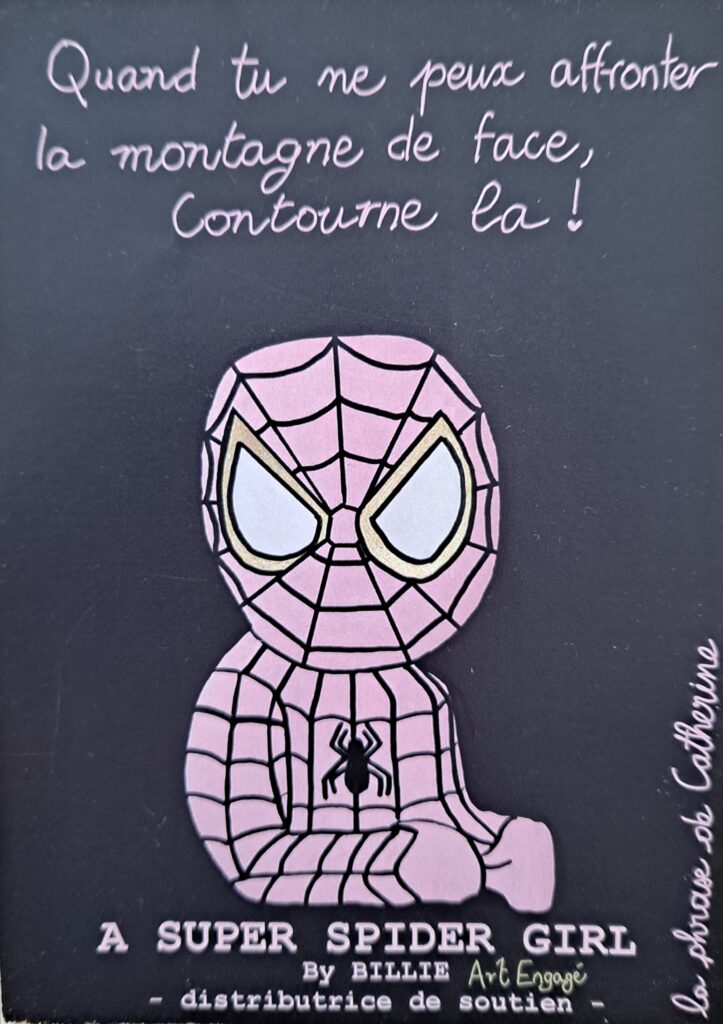 Quand tu ne peux affronter
la montagne de face,
Contourne la !
A SUPER SPIDER GIRL
By BILLIE Art Engagé
- distributrice de soutien -
la phrase de Catherine